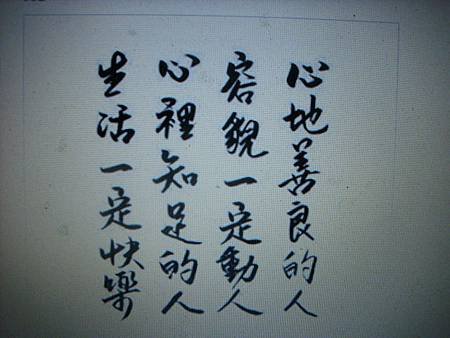 心地善良的人
容貌一定動人
心裡知足的人
生活一定快樂